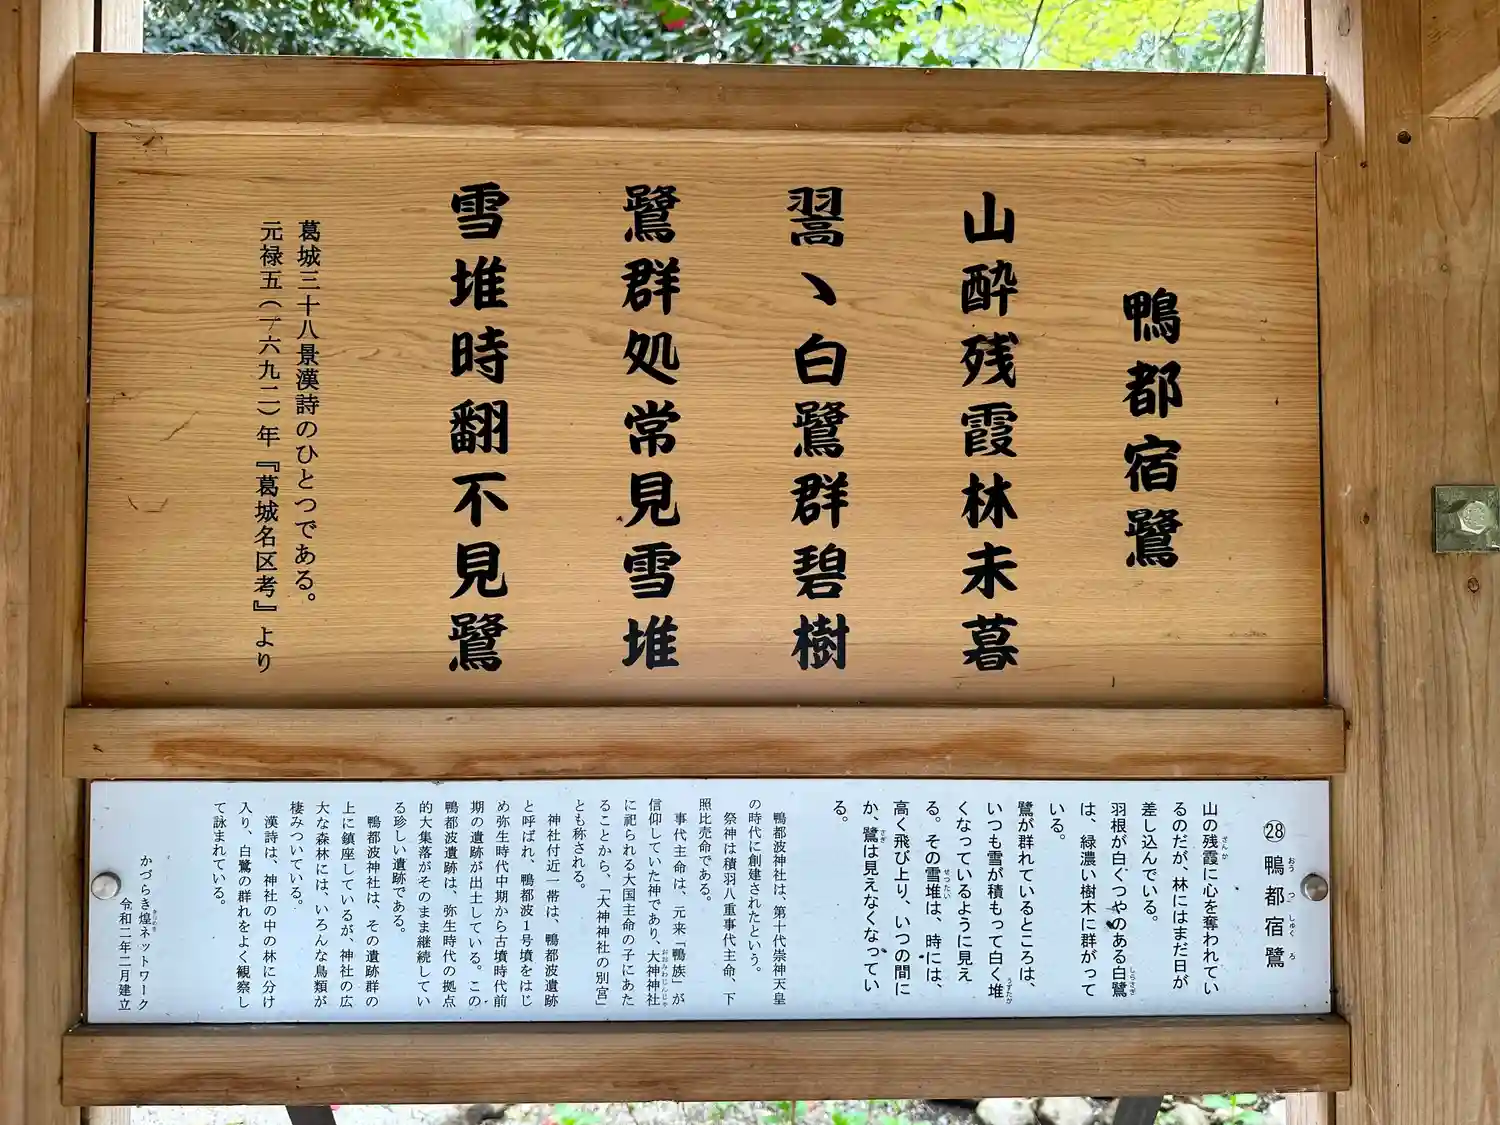 鴨都宿鷺
山酔残霞林未暮
翯丶白鷺群碧樹
鷺群処常見雪堆
雪堆時翻不見鷺
葛城三十八景漢詩のひとつである。
元禄五(一六九二)年『葛城名区考』より
㉘鴨都宿鷺
おうつしゅくろ
山の残霞に心を奪われてい
ざんか
るのだが、林にはまだ日が
差し込んでいる。
羽根が白くつやのある白鷺
しらさぎ
は、緑濃い樹木に群がって
いる。
鷺が群れているところは、
いつも雪が積もって白く堆
うずたか
くなっているように見え
る。その雪堆は、時には、
せつたい
高く飛び上り、いつの間に
か、鷺は見えなくなってい
さぎ
る。
鴨都波神社は、第十代崇神天皇
の時代に創建されたという。
祭神は積羽八重事代主命、下
照比売命である。
事代主命は、元来「鴨族」が
信仰していた神であり、大神神社
おおみわじんじゃ
に祀られる大国主命の子にあた
ることから、「大神神社の別宮」
とも称される。
神社付近一帯は、鴨都波遺跡
と呼ばれ、鴨都波1号墳をはじ
め弥生時代中期から古墳時代前
期の遺跡が出土している。この
鴨都波遺跡は、弥生時代の拠点
的大集落がそのまま継続してい
る珍しい遺跡である。
鴨都波神社は、その遺跡群の
上に鎮座しているが、神社の広
大な森林には、いろんな鳥類が
棲みついている。
漢詩は、神社の中の林に分け
入り、白鷺の群れをよく観察し
て詠まれている。
かづらき煌ネットワーク
きらめき
令和二年二月建立